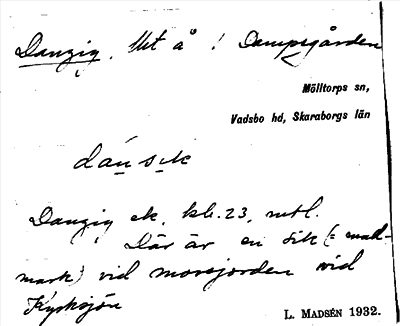 Danzig. Ut å ! Dampsgården
Mölltorps sn,
Vadsbo hd, Skaraborgs län
dansik
Danzig ek. kb. 23, mtl.
Där är en sik (= vall-
mark) vid mossjorden vid
Kyrksjön
L. MADSÉN 1932.